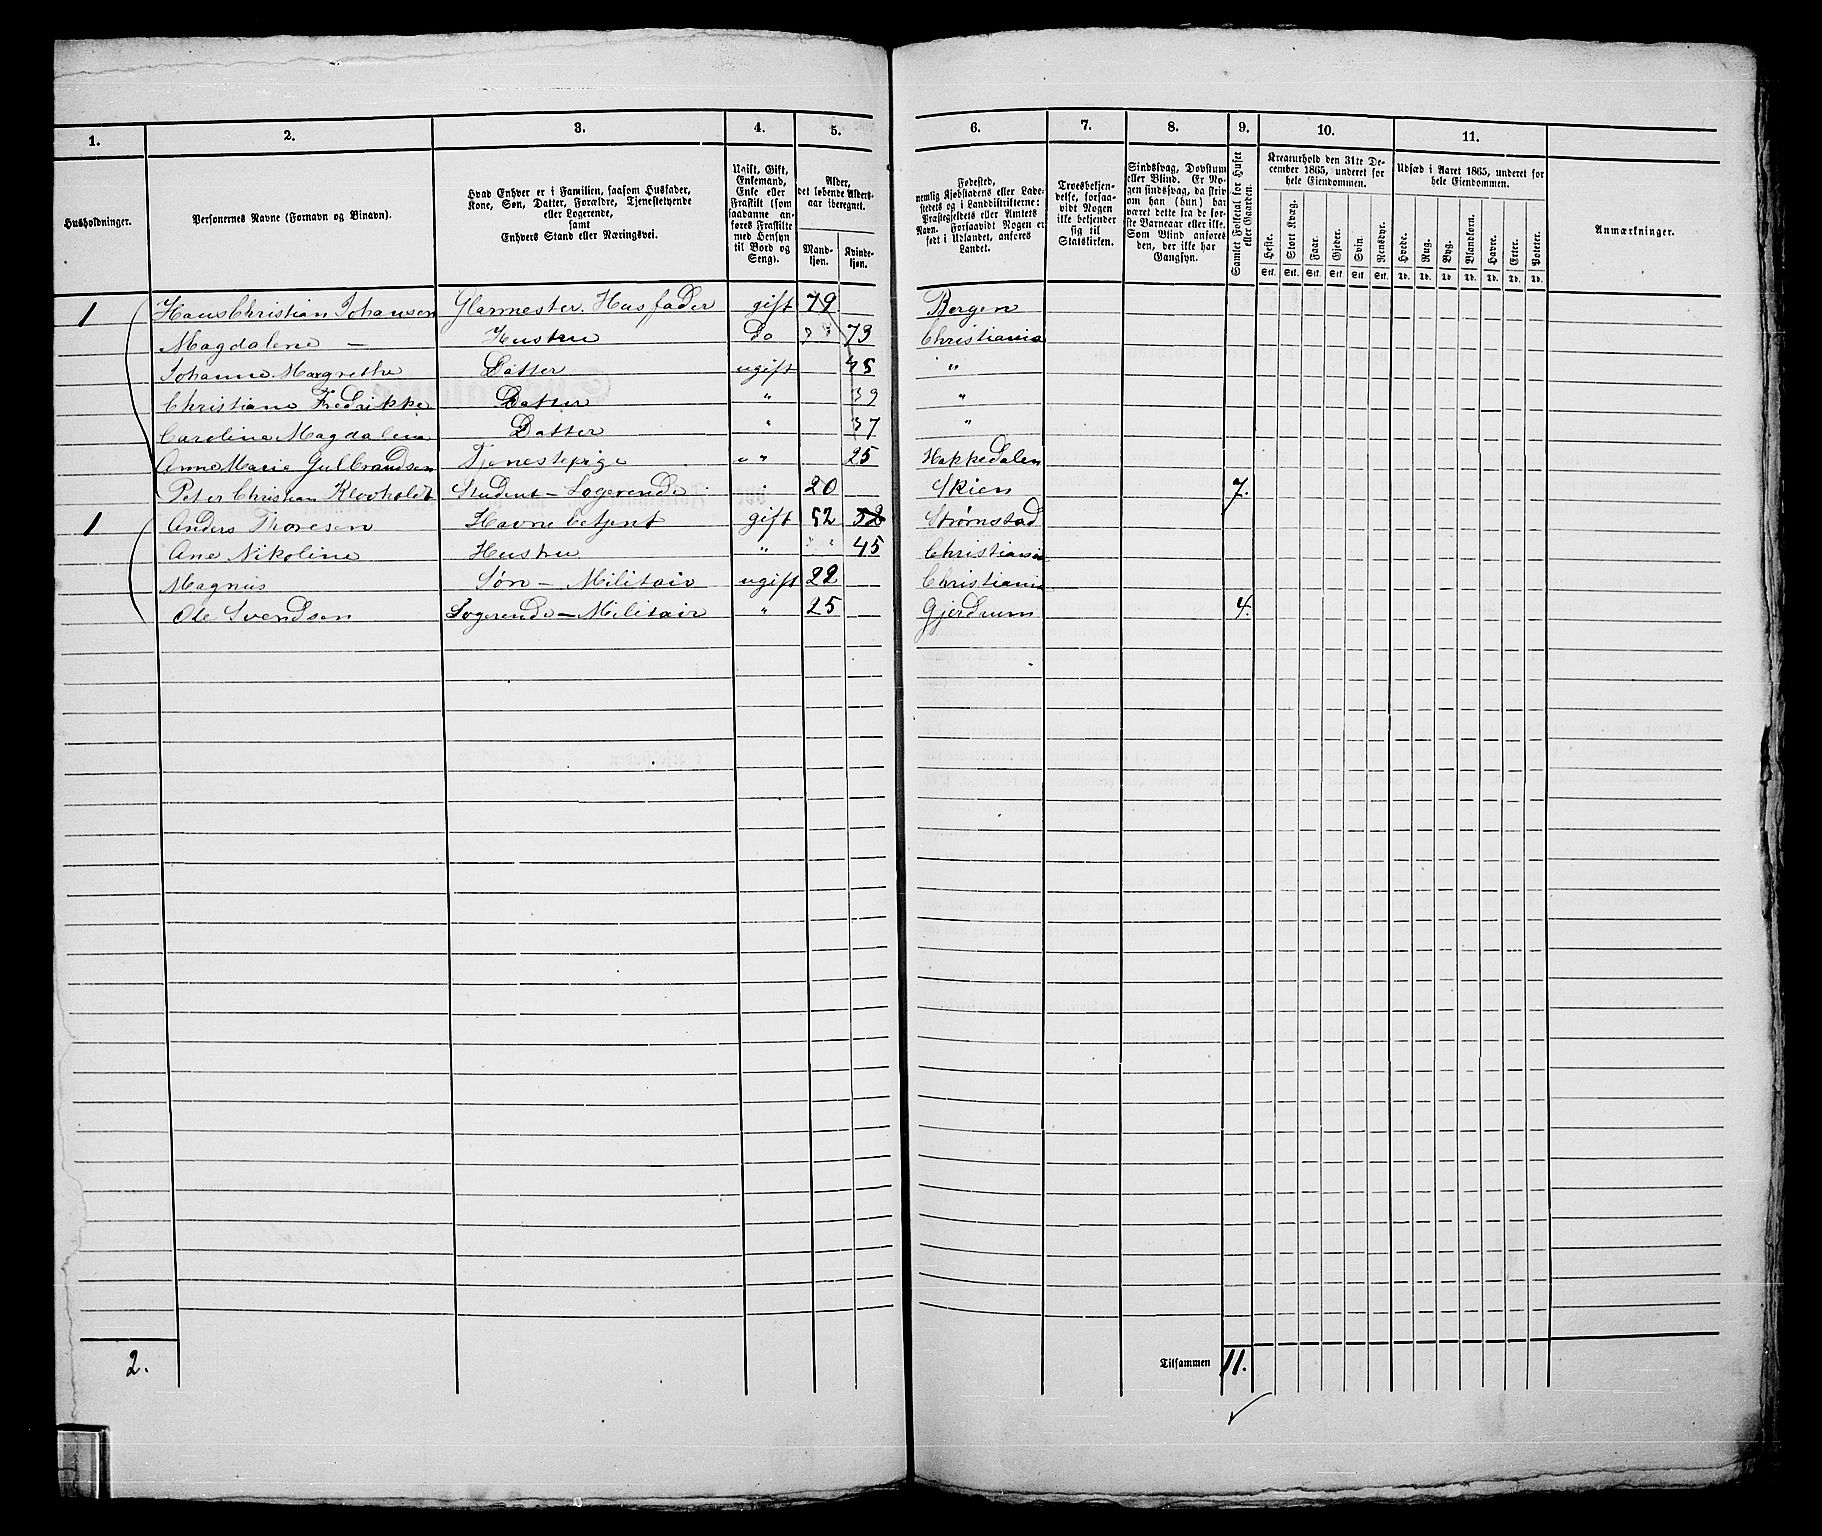 1. 2. 3. 4. 5. 6. 7. 8. 9. 10. 11.
Husholdninger.
Personernes Navne (Fornavn og Binavn).
Hvad Enhver er i Familien, saasom Husfader,
Kone, Søn, Datter, Forældre, Tjenestetyende
eller Logerende,
samt
Enhvers Stand eller Næringsvei.
Ugift, Gift,
Enkemand,
Enke eller
Fraskilt (som
saadanne an-
føres Fraskilte
med Hensyn
til Bord og
Seng).
Alder,
det løbende Alders-
aar iberegnet.
Mand-
kjøn.
Kvinde-
kjøn.
Fødested,
nemlig Kjøbstadens eller Lade-
stedets og i Landdistrikterne:
Præstegjeldets eller Amtets
Navn. Forsaavidt Nogen er
født i Udlandet, anføres
Landet.
Troesbekjen-
delse, forsaa-
vidt Nogen
ikke bekjender
sig til
Statskirken.
Sindssvag, Døvstum
eller Blind. Er No-
gen sindssvag, da skriv
om han (hun) har
været dette fra de før-
ste Barneaar eller ikke.
Som Blind anføres
den, der ikke har
Gangsyn.
Samlet Folketal for Huset
eller Gaarden.
Kreaturhold den 31te De-
cember 1865, underet for
hele Eiendommen.
Heste. Stort Kvæg. Faar. Gjeder. Svin. Rensdyr.
Stk. Stk. Stk. Stk. Stk. Stk.
Udsæd i Aaret 1865, underet for
hele Eiendommen.
Hvede. Rug. Byg. Blandkorn. Havre. Erter. Poteter.
Td. Td. Td. Td. Td. Td. Td.
Anmærkninger.
1 Hans Christian Johansen Glarmester. Husfader gift 79 Bergen
Magdalene — Hustru Do 73 Christiania
Johanne Margrethe Datter ugift 45 "
Christiane Fredrikke Datter " 39 "
Caroline Magdalena Datter " 37 "
Anne Marie Gulbrandsen Tjenestepige " 25 Hakkedalen
Peter Christian Student – Logerende 20 Skien 7.
1 Anders Thoresen Havnebetjent gift 52 52 Strømstad
Ane Nikoline Hustru " 45 Christiania
Magnus Søn – Militair ugift 22 Christiania
Ole Svendsen Logerende – Militair " 25 Gjerdrum 4.
2. Tilsammen 11.